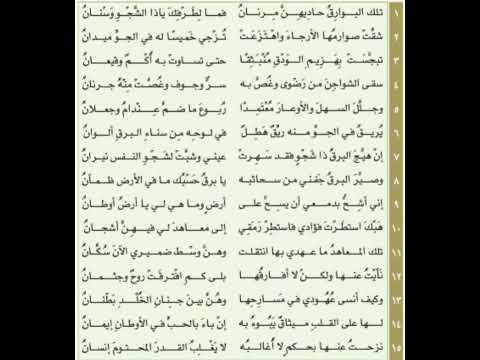 ١ تلك البوارقُ حاديهنَّ مِرنانُ فما لِطرْفِكَ ياذا الشَّجْوِ وَسْنانُ
٢ شقَّتْ صوارمُها الأرجاءَ واهْتَزَعَتْ تُزْجي خَميسًا له في الجوِّ ميدانُ
٣ تبجَّستْ بهَزيمِ الوَدْقِ مُنْبَثِقًا حتى تساوتْ به أُكْمٌ وقيعانُ
٤ سقى الشواجنَ من رَضْوى وغُصَّ به سرٌّ وجوف وغُصَّتْ مِنْهُ جرنانُ
٥ وجلَّلَ السهلَ والأوعارَ مُعْتَمِدًا رُبوعَ ما ضمَّ عِنْدامٌ وجعلانُ
٦ يُريقُ في الجوِّ منه ريِّقٌ هَطِلٌ في لوحِهِ من سناءِ البرقِ ألوانُ
٧ إنْ هيَّجَ البرقُ ذا شَجْوٍ فقد سَهِرتْ عيني وشبَّتْ لشَجْوِ النفس نيرانُ
٨ وصيَّرَ البرقُ جَفْني من سحائبه يا برقُ حَسْبُكَ ما في الأرض ظمآنُ
٩ إني أَشِحُّ بدمعي أن يسحَّ على أرضٍ وما هي لي يا أرضُ أوطانُ
١٠ هَبْكَ استطرْتَ فؤادي فاستطِرْ رَمَقي إلى معاهدَ لي فيهنَّ أشجانُ
١١ تلك المعاهدُ ما عهدي بها انتقلتْ وهنَّ وسْط ضميري الآنَ سُكَّانُ
١٢ نَأَيْتُ عنها ولكنْ لا أفارقُها بلى كم افترقَتْ روحٌ وجثمانُ
١٣ وكيف أنسى عُهُودي في مَسارِحِها وهُنَّ بين جِنانِ الخُلْدِ بَطْنانُ
١٤ لها على القلبِ ميثاقٌ يَبُوءُ به إنْ باءَ بالحبِّ في الأوطانِ إيمانُ
١٥ نزحتُ عنها بحكمٍ لا أُغالبُهُ لا يَغْلِبُ القدرَ المحتومَ إنسانُ